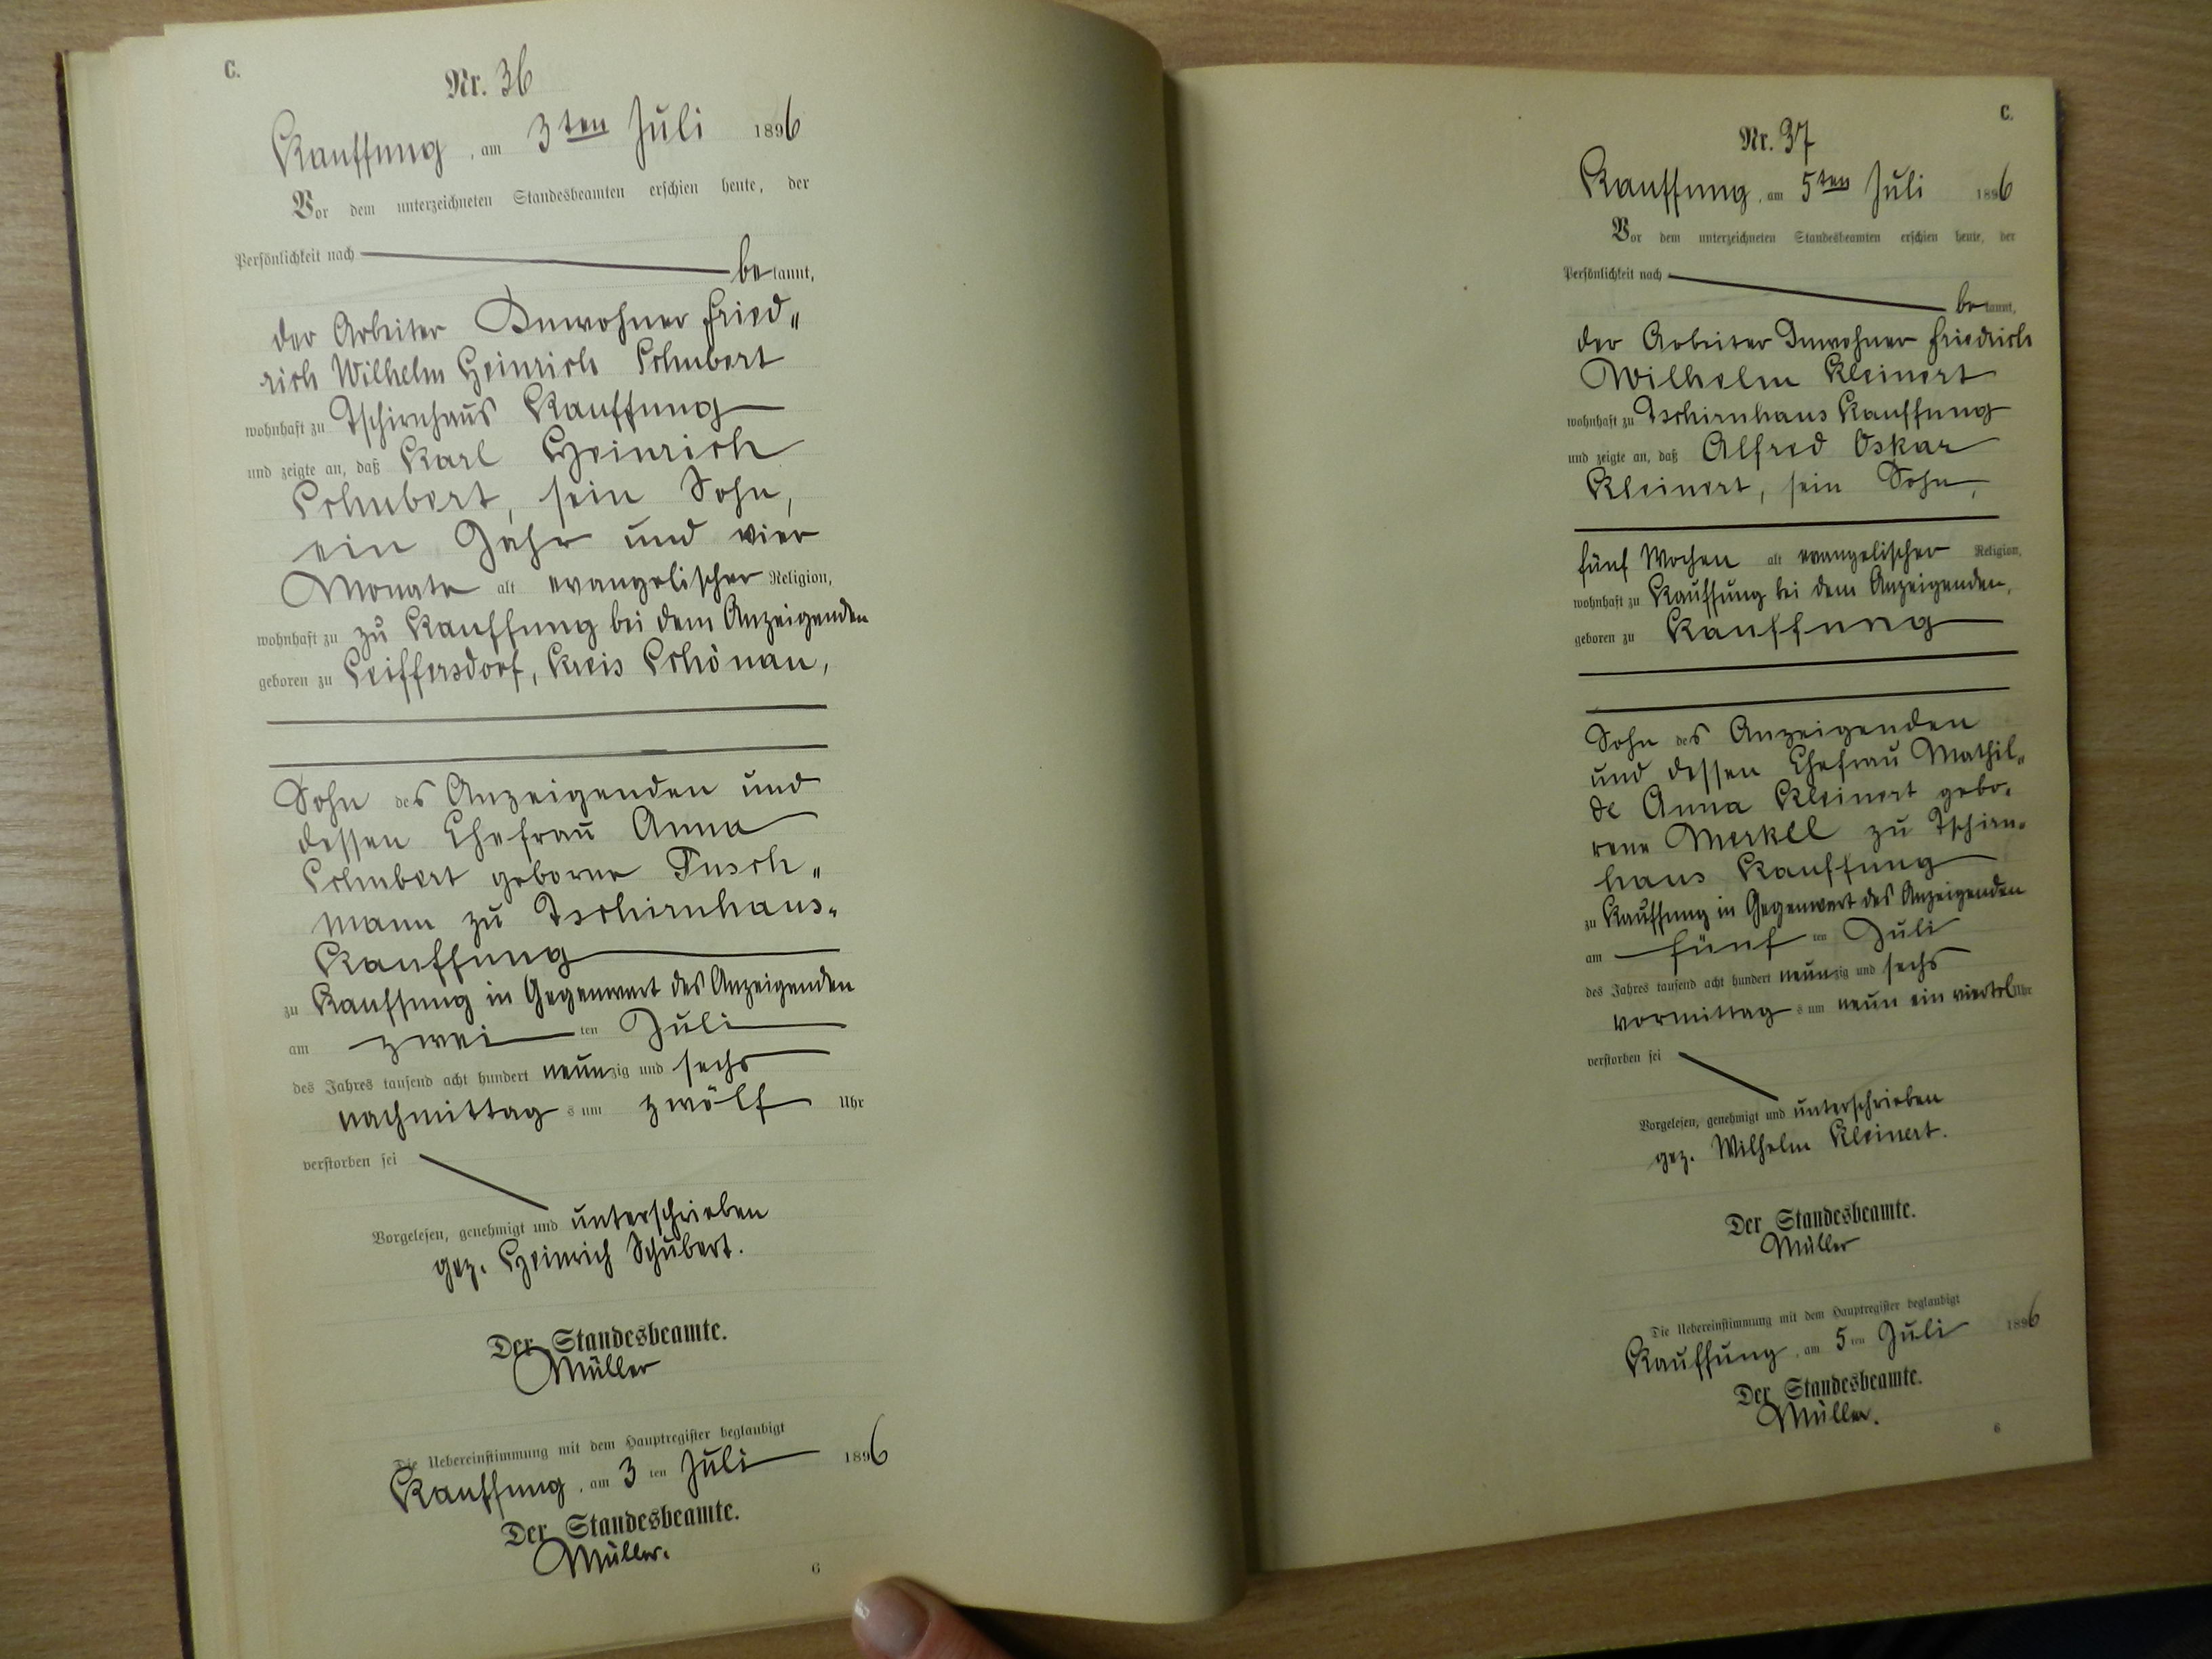 C.
Nr. 36
Kauffung, am 3ten Juli 1896
Vor dem unterzeichneten Standesbeamten erschien heute, der
Persönlichkeit nach
bekannt,
der Arbeiter Inwohner Fried„
rich Wilhelm Heinrich Schubert
wohnhaft zu Tschirnhaus Kauffung
und zeigte an, daß Karl Heinrich
Schubert, sein Sohn,
ein Jahr und vier
Monate alt evangelischer Religion,
wohnhaft zu zu Kauffung bei dem Anzeigenden
geboren zu Seiffersdorf, Kreis Schönau,
Sohn des Anzeigenden und
dessen Ehefrau Anna
Schubert geborne Tusch„
mann zu Tschirnhaus„
Kauffung
zu Kauffung in Gegenwart des Anzeigenden
am zwei ten Juli
des Jahres tausend acht hundert neunzig und sechs
nachmittags um zwölf Uhr
verstorben sei
Vorgelesen, genehmigt und unterschrieben
gez. Heinrich Schubert.
Der Standesbeamte.
Müller
Die Uebereinstimmung mit dem Hauptregister beglaubigt
Kauffung, am 3 ten Juli 1896
Der Standesbeamte.
Müller.
6
C.
Nr. 37
Kauffung, am 5ten Juli 1896
Vor dem unterzeichneten Standesbeamten erschien heute, der
Persönlichkeit nach
bekannt,
der Arbeiter Inwohner Friedrich
Wilhelm Kleinert
wohnhaft zu Tschirnhaus Kauffung
und zeigte an, daß Alfred Oskar
Kleinert, sein Sohn,
fünf Wochen alt evangelischer Religion,
wohnhaft zu Kauffung bei dem Anzeigenden,
geboren zu Kauffung
Sohn des Anzeigenden
und dessen Ehefrau Mathil„
de Anna Kleinert gebo„
rene Merkel zu Tschirn„
haus Kauffung
zu Kauffung in Gegenwart des Anzeigenden
am fünf ten Juli
des Jahres tausend acht hundert neunzig und sechs
vormittags um neun ein viertel Uhr
verstorben sei
Vorgelesen, genehmigt und unterschrieben
gez. Wilhelm Kleinert.
Der Standesbeamte.
Müller
Die Uebereinstimmung mit dem Hauptregister beglaubigt
Kauffung, am 5 ten Juli 1896
Der Standesbeamte.
Müller.
6